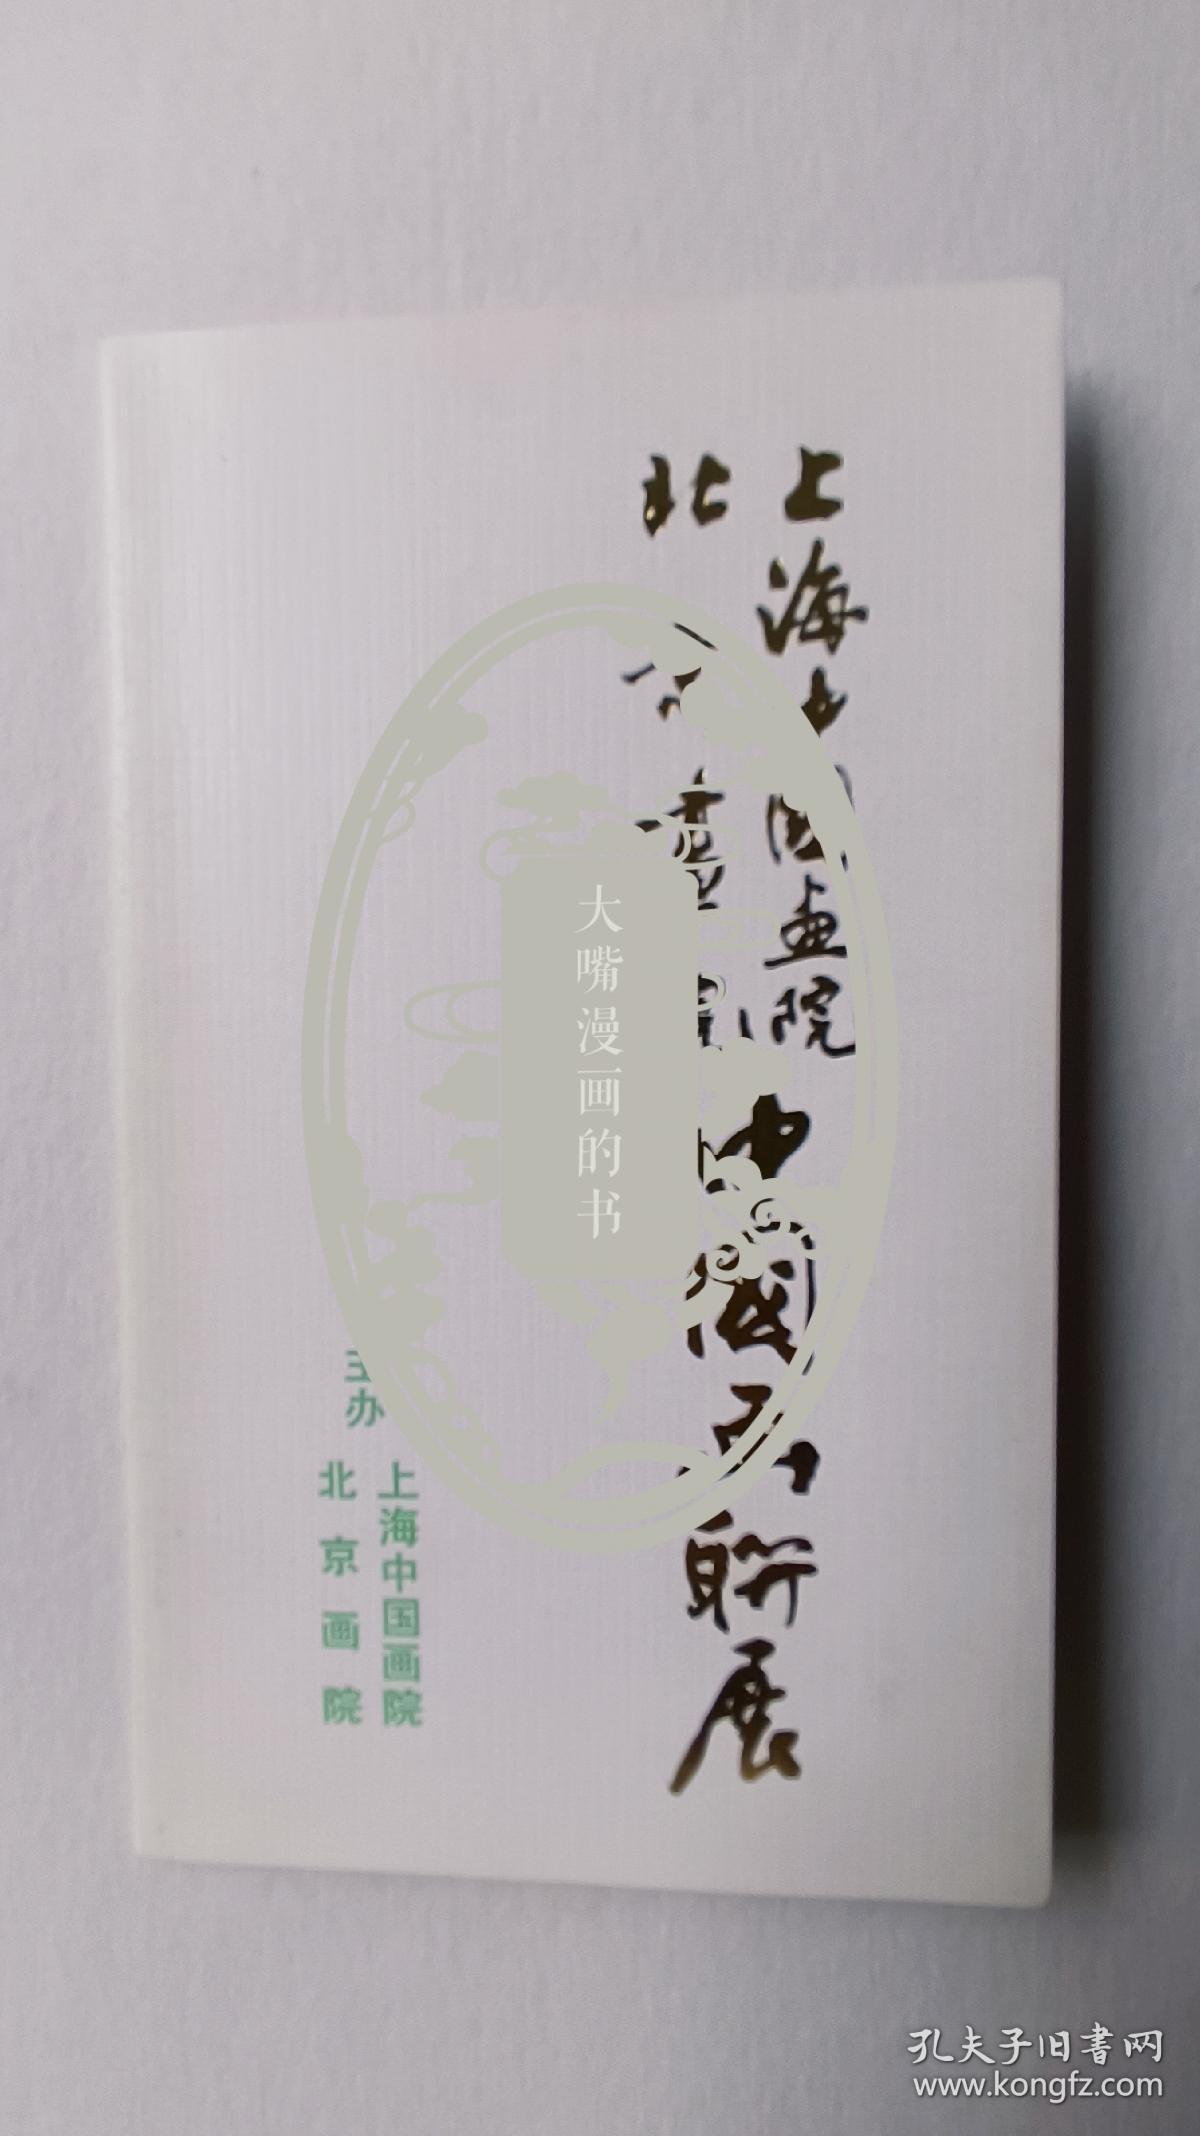 上海中國画院
北京畫院
中國画聯展
主办
上海中国画院
北京画院
大嘴漫画的书
孔夫子旧書网
www.kongfz.com